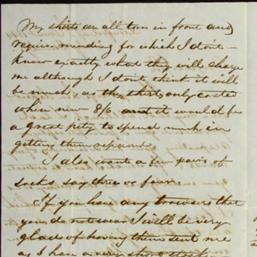 My shirts are all torn in front and
require mending for which I dont
know exactly what they will charge
me although I dont think it will
be much, as the shirt only costs
when new 8/6 and it would be
a great pity to spend much in
getting them repaired.
I also want a few pairs of
socks say three or four.
If you have any trowsers that
you do not wear I will be very
glad of having them sent me
as I have a very short stock